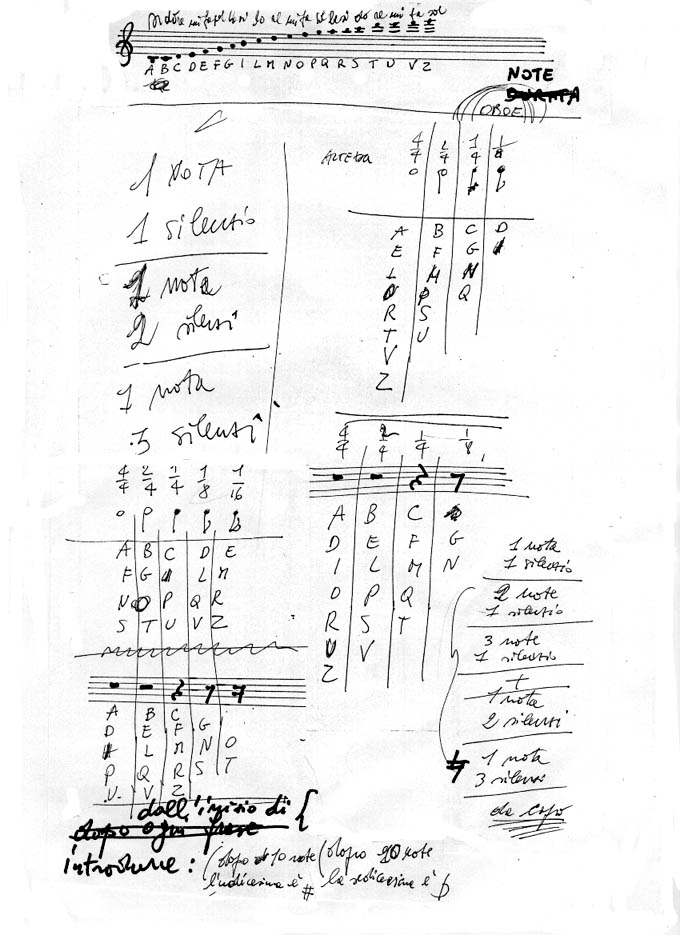 si do re mi fa sol la si do re mi fa sol la si do re mi fa sol
A B C D E F G I L M N O P Q R S T U V Z
NOTE
OBOE
1 NOTA
1 silenzio
2 nota
2 silenzi
1 nota
3 silenzi
ALTEZZA 4/4 2/4 1/4 1/8
A B C D
E F G
L M N
O P Q
R S
T U
V
Z
4/4 2/4 1/4 1/8 1/16
A B C D E
F G L M
N O P Q R
S T U V Z
A B C
D E F G
L M N O
P Q R S T
U V Z
4/4 2/4 1/4 1/8
A B C
D E F G
I L M N
O P Q
R S T
U V
Z
1 nota
1 silenzio
2 note
1 silenzio
3 note
1 silenzio
+
1 nota
2 silenzi
1 nota
3 silenzi
da capo
dall'inizio di {
dopo ogni frase
introdurre: (dopo 10 note (dopo 20 note
l'undicesima è # la sedicesima è b